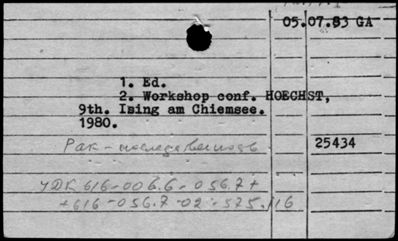 05.07.83 GA
1. Ed.
2. Workshop conf. HOECHST,
9th. Ising am Chiemsee.
1980.
Рак - наследственность 25434
УДК 616-006.6-056.7+
+616-056.7-02:575.116